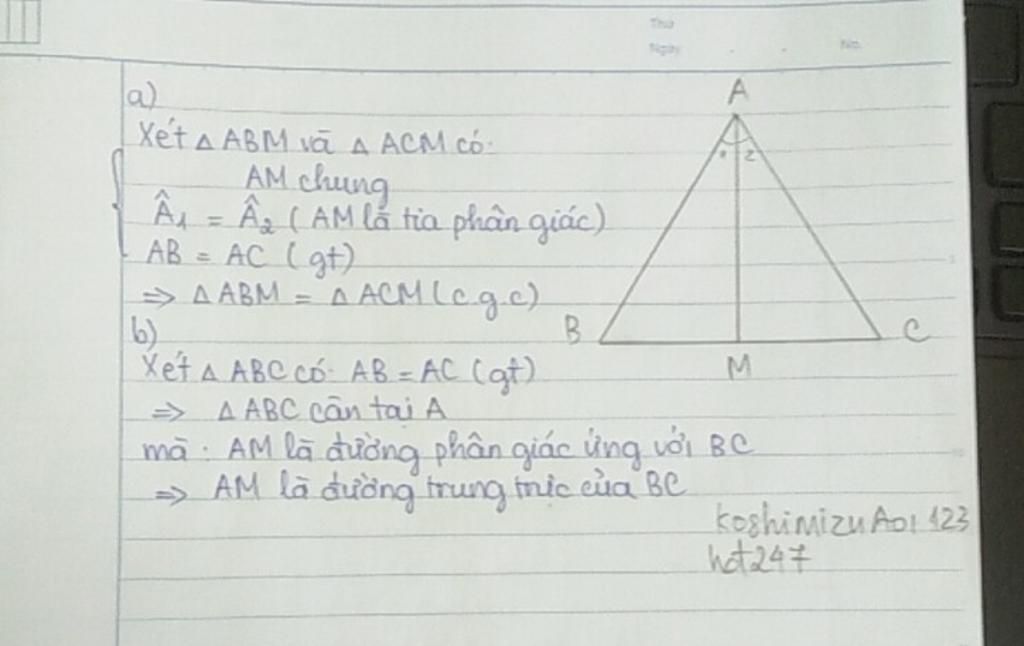 Thứ
Ngày
No.
a)
Xét △ ABM và △ ACM có:
AM chung
Â1 = Â2 ( AM là tia phân giác)
AB = AC ( gt)
=> △ ABM = △ ACM ( c.g.c)
b)
Xét △ ABC có: AB = AC ( gt)
=> △ ABC cân tại A
mà : AM là đường phân giác ứng với BC
=> AM là đường trung trực của BC
A
1 2
B
C
M
KoshimizuAoi 123
hot247